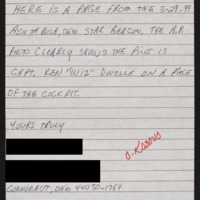 HERE IS A PAGE FROM THE 3-29-99
ASHTABULA, OHIO STAR BEACON. THE A.P.
PHOTO CLEARLY SHOWS THE PILOT IS
CAPT. KEN "WIZ" DWELLE ON A PIECE
OF THE COCKPIT.
YOURS TRULY
O. Kosovo
CONNEAUT, OHIO 44030-1764